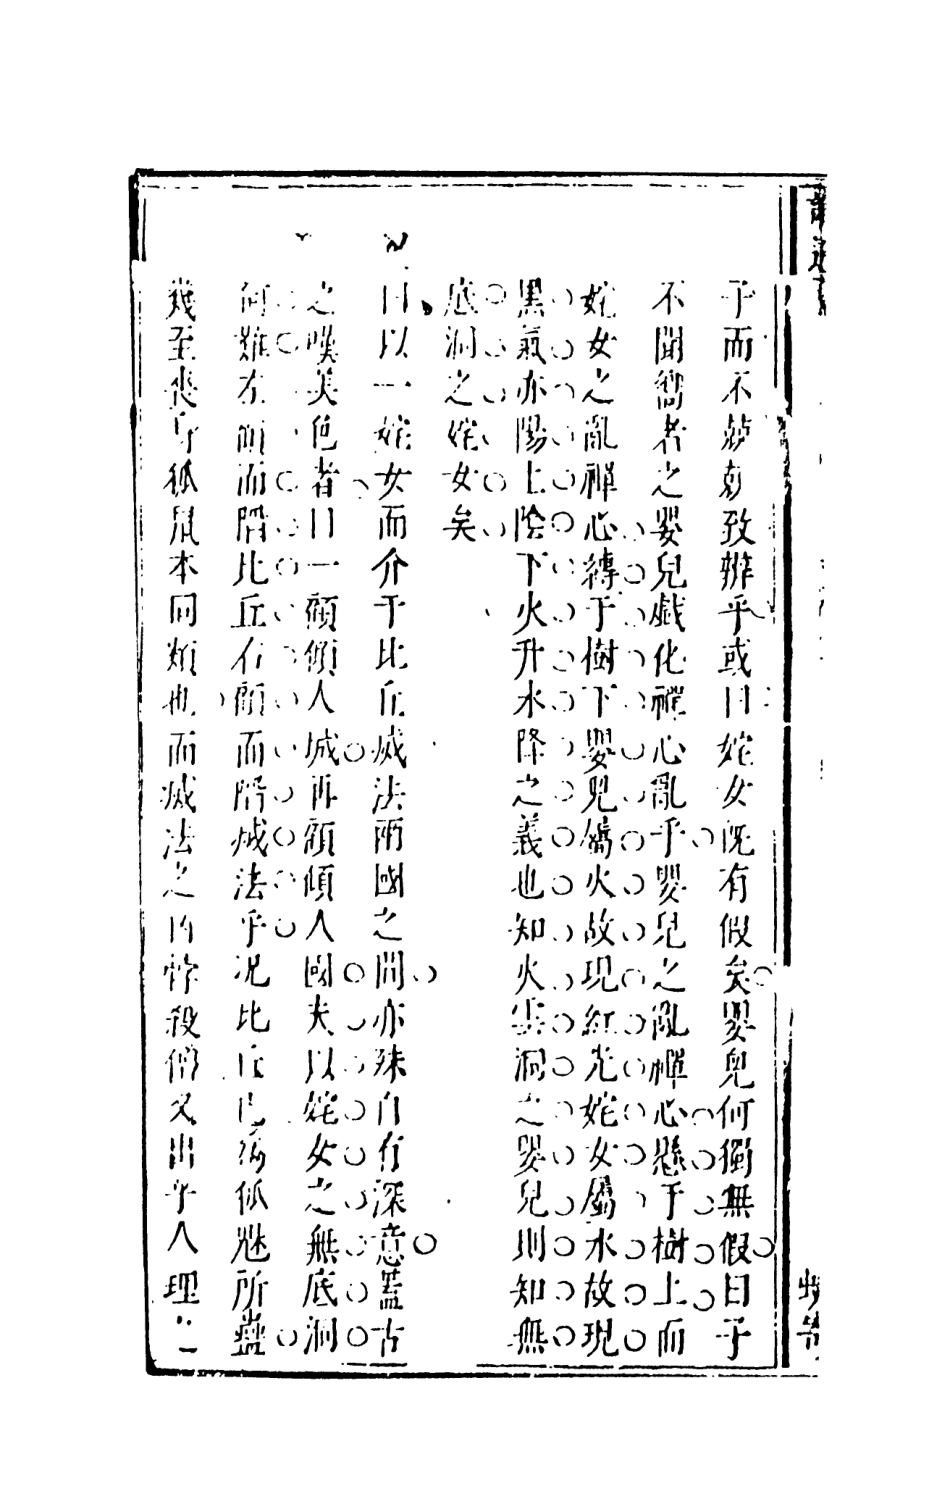 乎而不	致辨乎或曰姹女既有假矣嬰兒何獨無假曰子
不聞嚮者之嬰兒戲化禪心亂乎嬰兒之亂禪心懸于樹上而
姹女之亂禪心縛于樹下嬰兒屬火故現紅光姹女屬水故現
黑氣亦陽上陰下火升水降之義也知火雲洞之嬰兒則知無
底洞之姹女矣
曰以一姹女而介于比丘滅法兩國之間亦殊自有深意蓋古
之嘆美色者曰一顧傾人城再顧傾人國夫以姹女之無底洞
何難左顧而陷比丘右顧而陷滅法乎況比丘已為狐魅所蠱
幾至喪 狐鼠本同類也而滅法之 殺僧又出乎人理